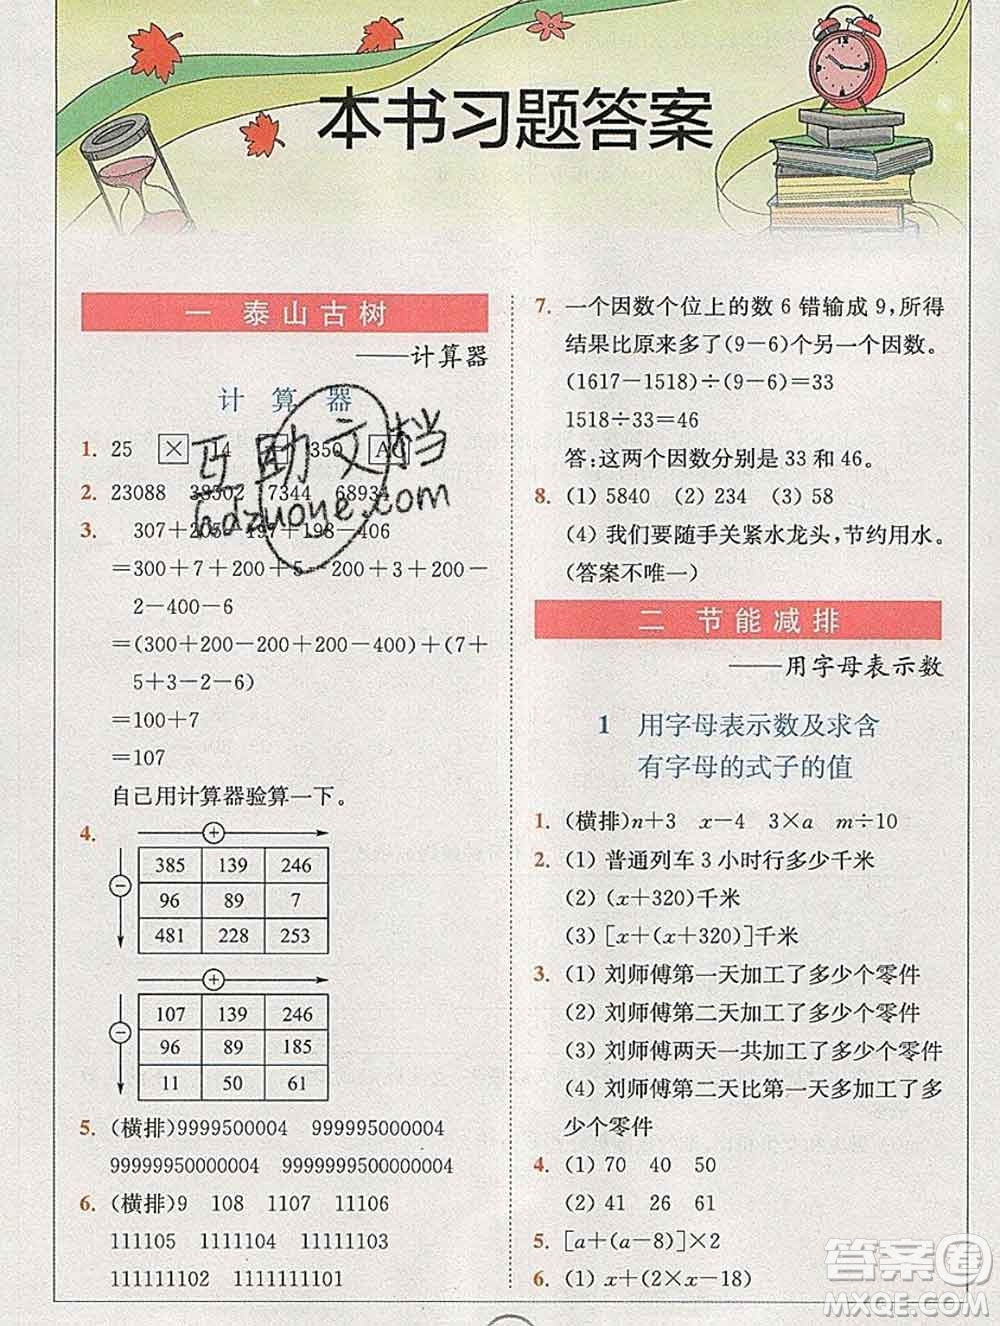 本书习题答案
一 泰山古树
——计算器
计 算 器
1. 25 × 14 350 AC
2. 23088 38302 7344 68934
3. 307+205-197+198-406
=300+7+200+5-200+3+200-
2-400-6
=(300+200-200+200-400)+(7+
5+3-2-6)
=100+7
=107
自己用计算器验算一下。
4. +
−
385 139 246
96 89 7
481 228 253
+
−
107 139 246
96 89 185
11 50 61
5. (横排)9999500004 999995000004
99999950000004 9999999500000004
6. (横排)9 108 1107 11106
111105 1111104 11111103
111111102 1111111101
7. 一个因数个位上的数 6 错输成 9,所得
结果比原来多了(9-6)个另一个因数。
(1617-1518)÷(9-6)=33
1518÷33=46
答:这两个因数分别是 33 和 46。
8. (1) 5840 (2) 234 (3) 58
(4) 我们要随手关紧水龙头,节约用水。
(答案不唯一)
二 节能减排
——用字母表示数
1 用字母表示数及求含
有字母的式子的值
1. (横排)n+3 x-4 3×a m÷10
2. (1) 普通列车 3 小时行多少千米
(2) (x+320)千米
(3) [x+(x+320)]千米
3. (1) 刘师傅第一天加工了多少个零件
(2) 刘师傅第二天加工了多少个零件
(3) 刘师傅两天一共加工了多少个零件
(4) 刘师傅第二天比第一天多加工了多
少个零件
4. (1) 70 40 50
(2) 41 26 61
5. [a+(a-8)]×2
6. (1) x+(2×x-18)
互助文档
hdzuoye.com
答案圈
MXQE.COM